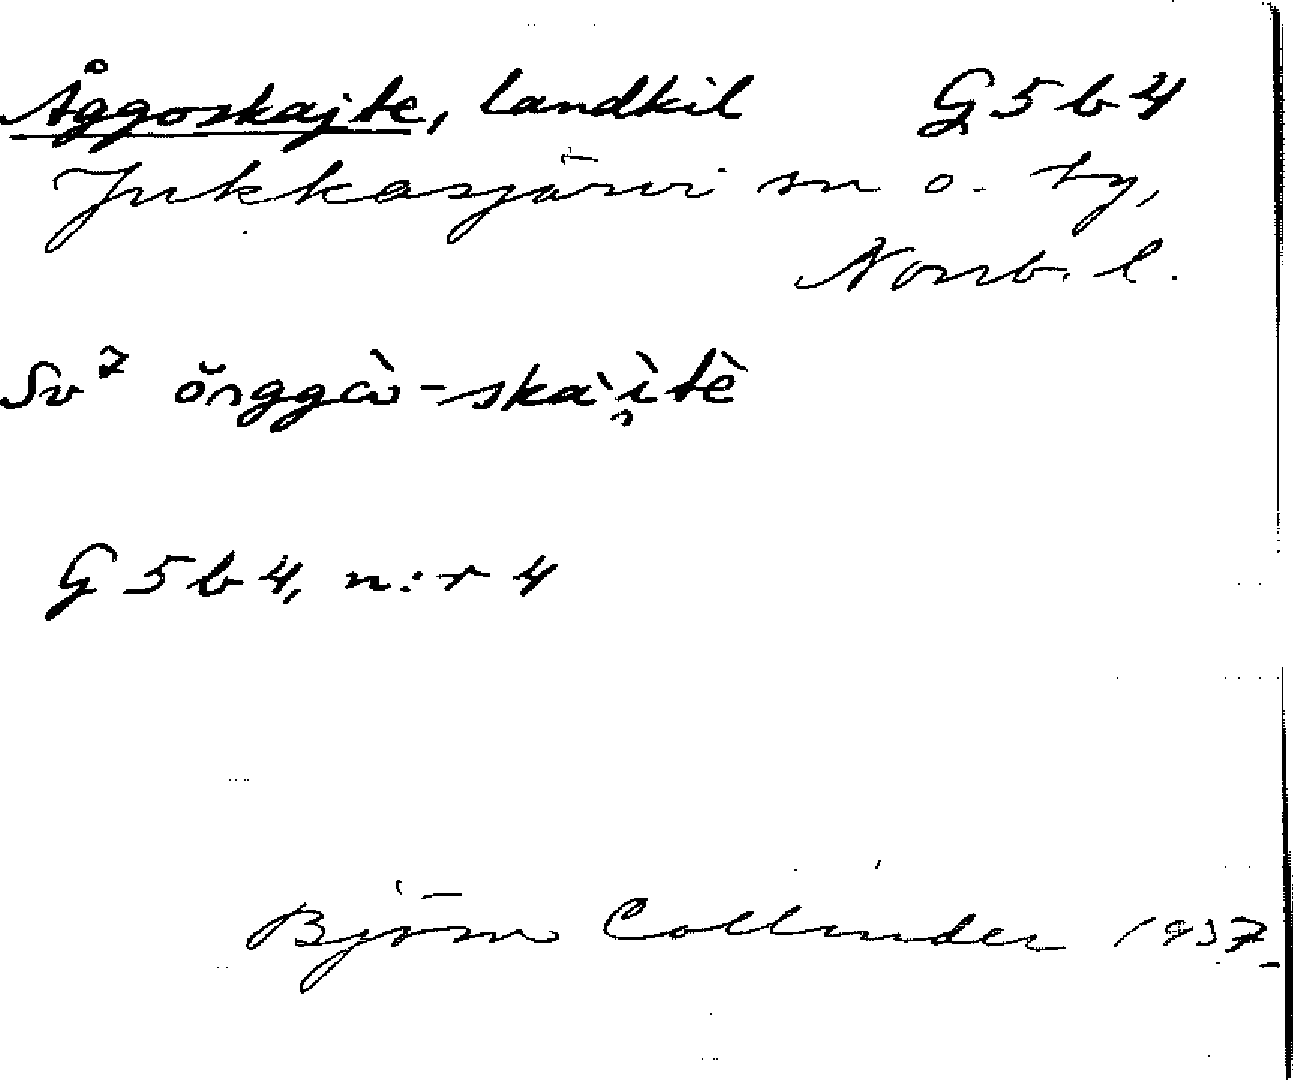 Åggoskajte, landkil G5b4
Jukkasjärvi sn o. by,
Norrb. l.
Sv⁷
G5b4, n:r 4
Björn Collinder 1937